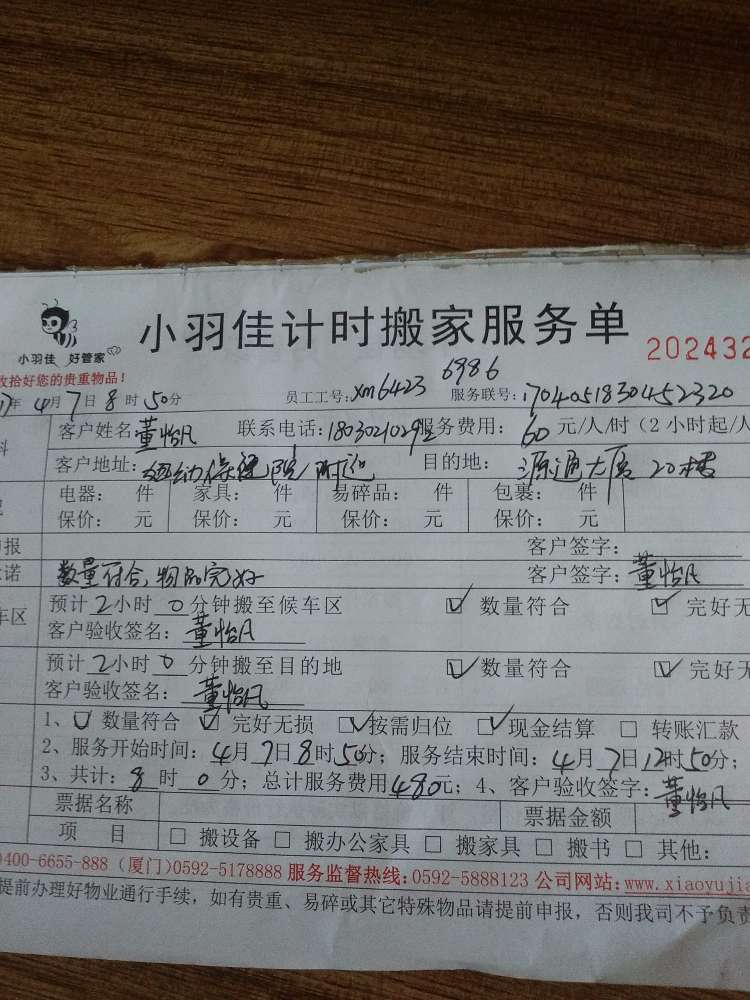 小羽佳 好管家
小羽佳计时搬家服务单
202432
收拾好您的贵重物品!
年4月7日8时50分 员工工号:xm6423 6986 服务联号:1704051830452320
客户姓名董怡凡 联系电话:1803021029 服务费用:60元/人/时(2小时起/人
客户地址:妇幼保健院附近 目的地:源通大厦20楼
电器: 件 家具: 件 易碎品: 件 包裹: 件
保价: 元 保价: 元 保价: 元 保价: 元
报 客户签字:
诺 数量符合,物品完好 客户签字:董怡凡
车区 预计2小时0分钟搬至候车区 ☑ 数量符合 ☑ 完好无
客户验收签名:董怡凡
预计2小时0分钟搬至目的地 ☑ 数量符合 ☑ 完好无
客户验收签名:董怡凡
1、☑ 数量符合 ☑ 完好无损 ☑ 按需归位 ☑ 现金结算 □ 转账汇款
2、服务开始时间:4月7日8时50分;服务结束时间:4月7日12时50分;
3、共计:8时0分;总计服务费用480元;4、客户验收签字:董怡凡
票据名称 票据金额
项 目 □ 搬设备 □ 搬办公家具 □ 搬家具 □ 搬书 □ 其他:
0400-6655-888(厦门)0592-5178888 服务监督热线:0592-5888123 公司网站:www.xiaoyujia
提前办理好物业通行手续,如有贵重、易碎或其它特殊物品请提前申报,否则我司不予负责